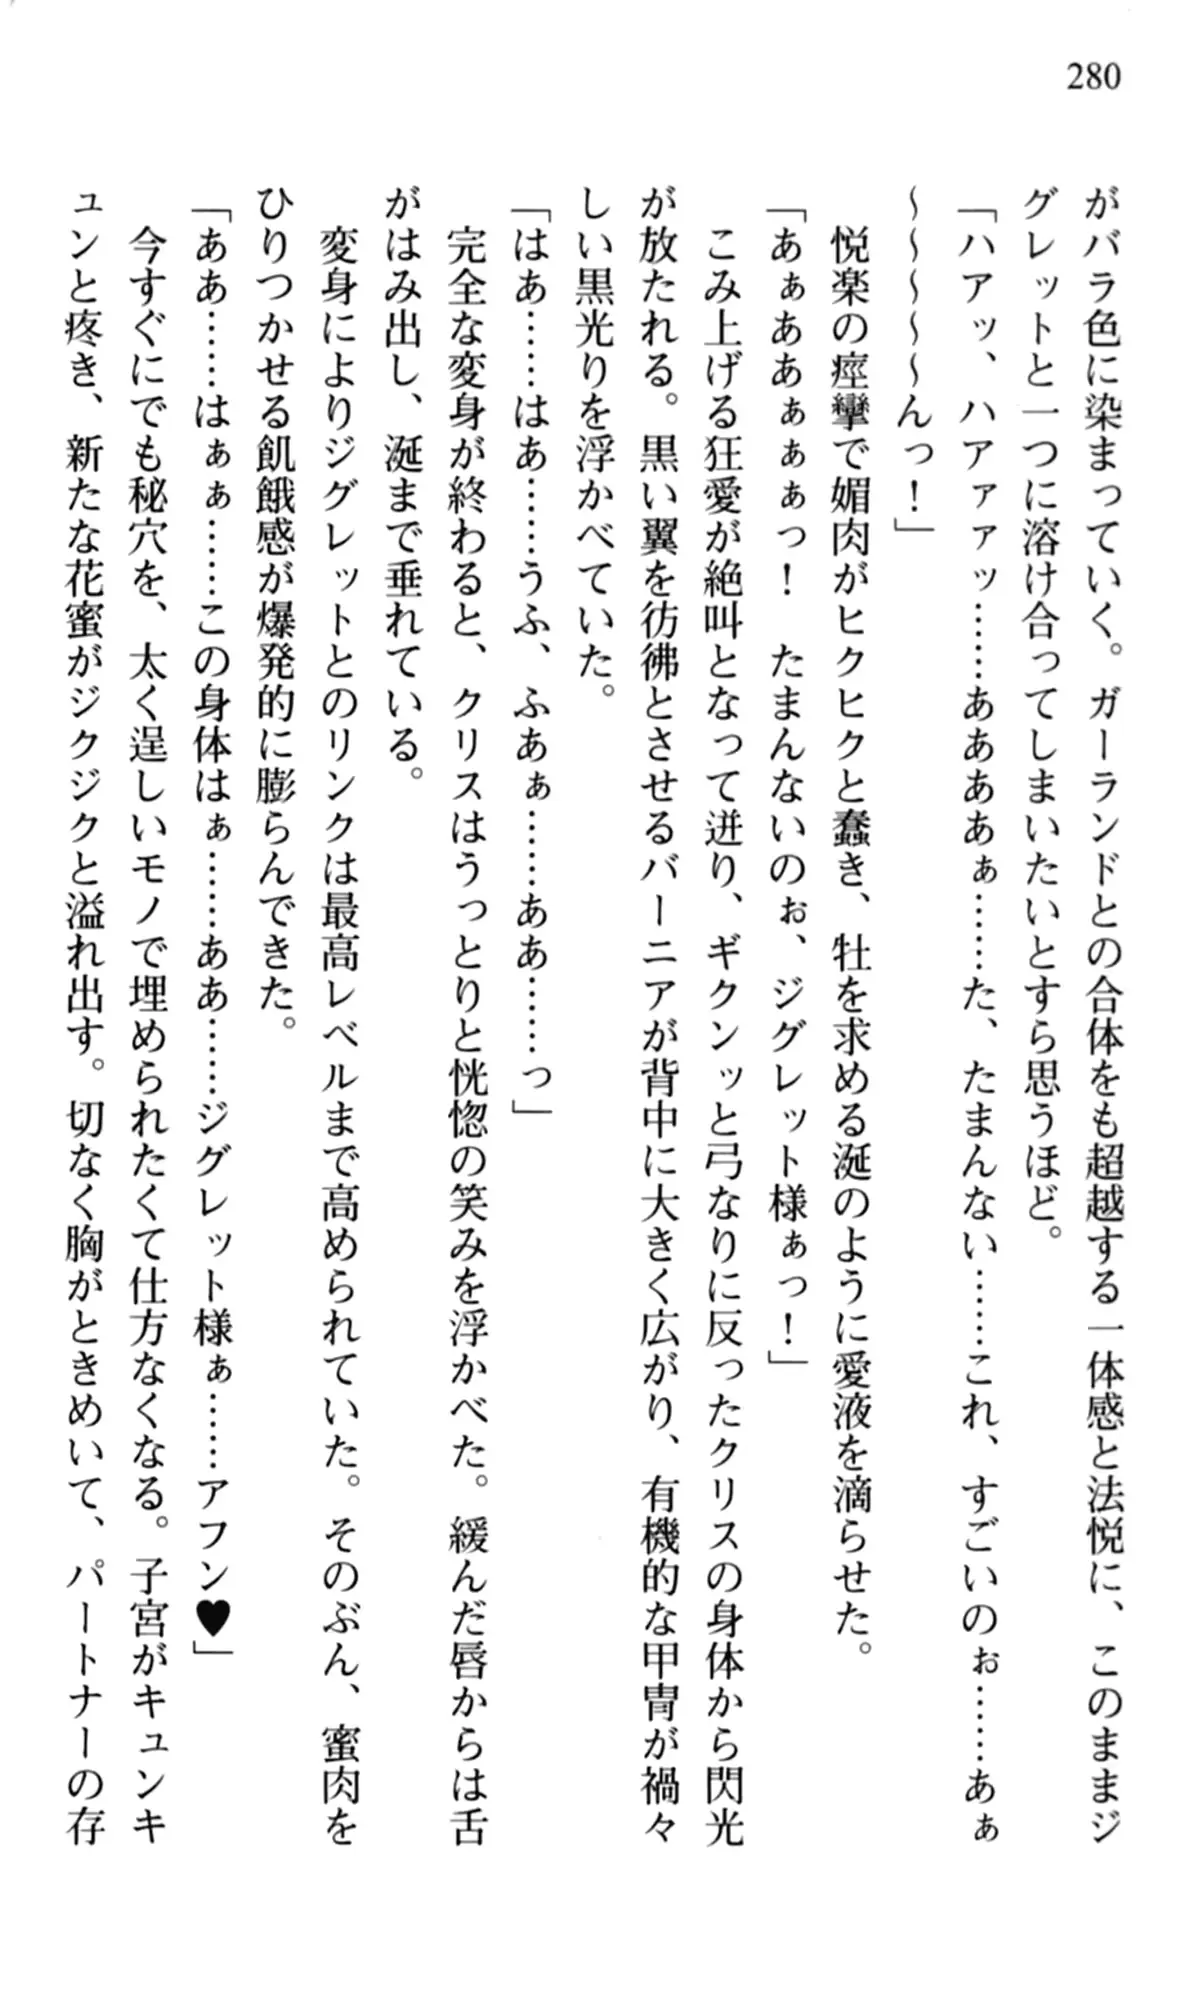 280
がバラ色に染まっていく。ガーランドとの合体をも超越する一体感と法悦に、このままジ
グレットと一つに溶け合ってしまいたいとすら思うほど。
「ハアッ、ハアァァッ………あああぁ………た、たまんない……これ、すごいのぉ………あぁ
～～～～～んっ！」
悦楽の痙攣で媚肉がヒクヒクと蠢き、牡を求める涎のように愛液を滴らせた。
「あぁああぁぁぁっ！　たまんないのぉ、ジグレット様ぁっ！」
こみ上げる狂愛が絶叫となって迸り、ギクンッと弓なりに反ったクリスの身体から閃光
が放たれる。黒い翼を彷彿とさせるバーニアが背中に大きく広がり、有機的な甲冑が禍々
しい黒光りを浮かべていた。
「はあ………はあ………うふ、ふあぁ………ああ……っ」
完全な変身が終わると、クリスはうっとりと恍惚の笑みを浮かべた。緩んだ唇からは舌
がはみ出し、涎まで垂れている。
変身によりジグレットとのリンクは最高レベルまで高められていた。そのぶん、蜜肉を
ひりつかせる飢餓感が爆発的に膨らんできた。
「ああ……はぁぁ………この身体はぁ………ああ……ジグレット様ぁ……アフン♥」
今すぐにでも秘穴を、太く逞しいモノで埋められたくて仕方なくなる。子宮がキュンキ
ュンと疼き、新たな花蜜がジクジクと溢れ出す。切なく胸がときめいて、パートナーの存